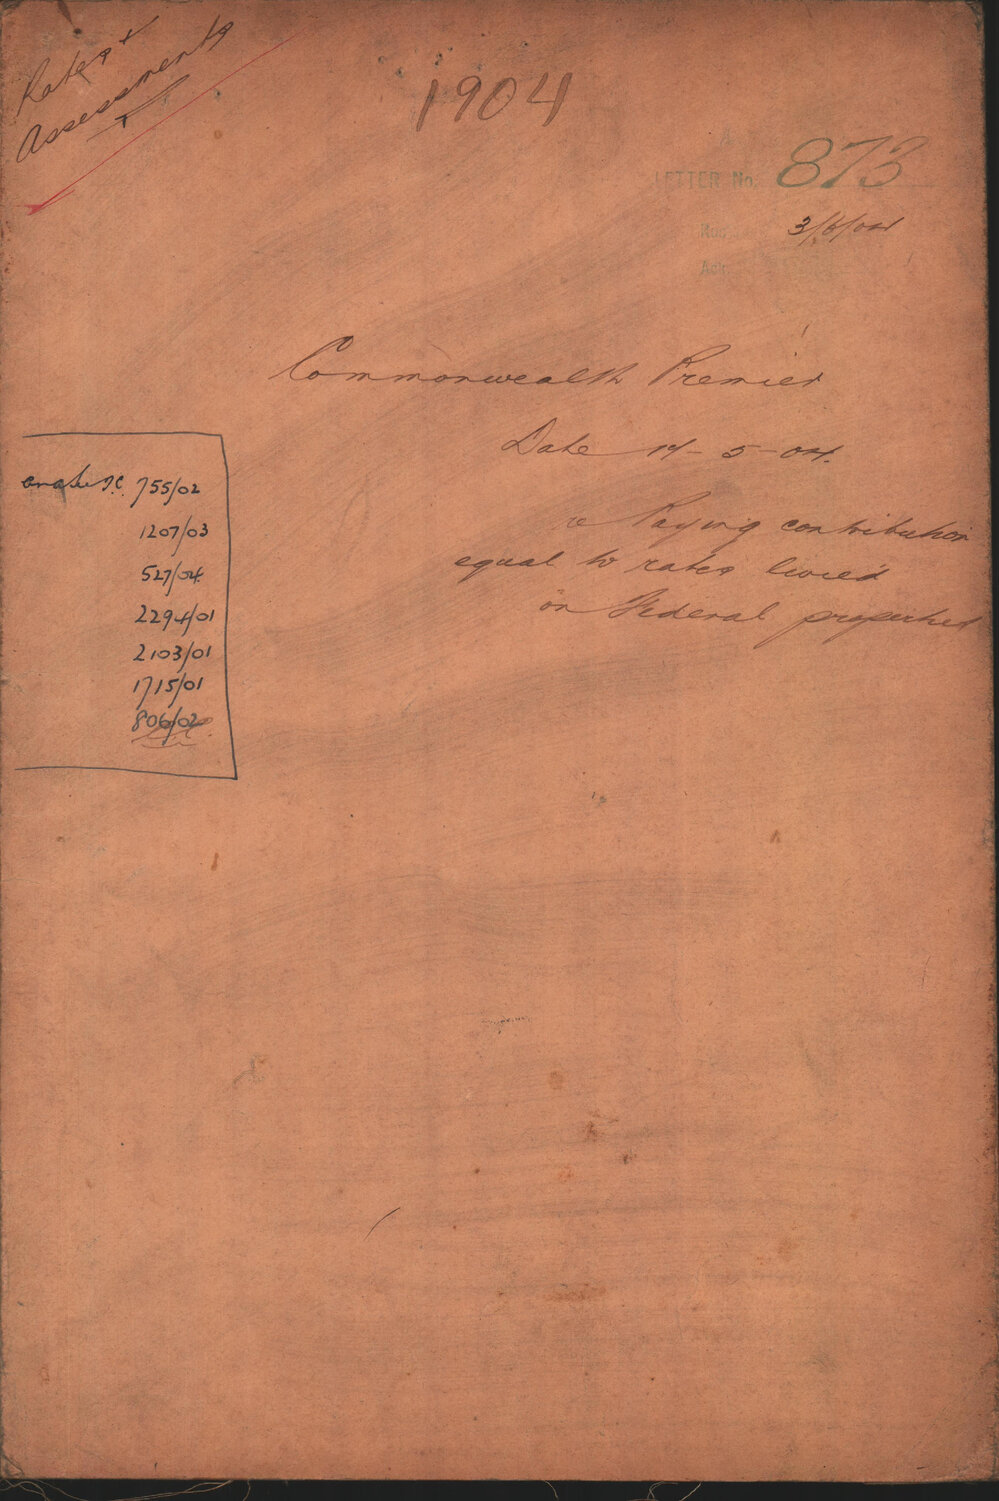 Rates +
Assessments
1904
LETTER No. 873
3/6/04
Ack
Commonwealth Premier
Date 14-5-04.
re Paying contribution
equal to rates levied
on Federal properties
755/02
1207/03
527/04
2294/01
2103/01
1715/01
806/02